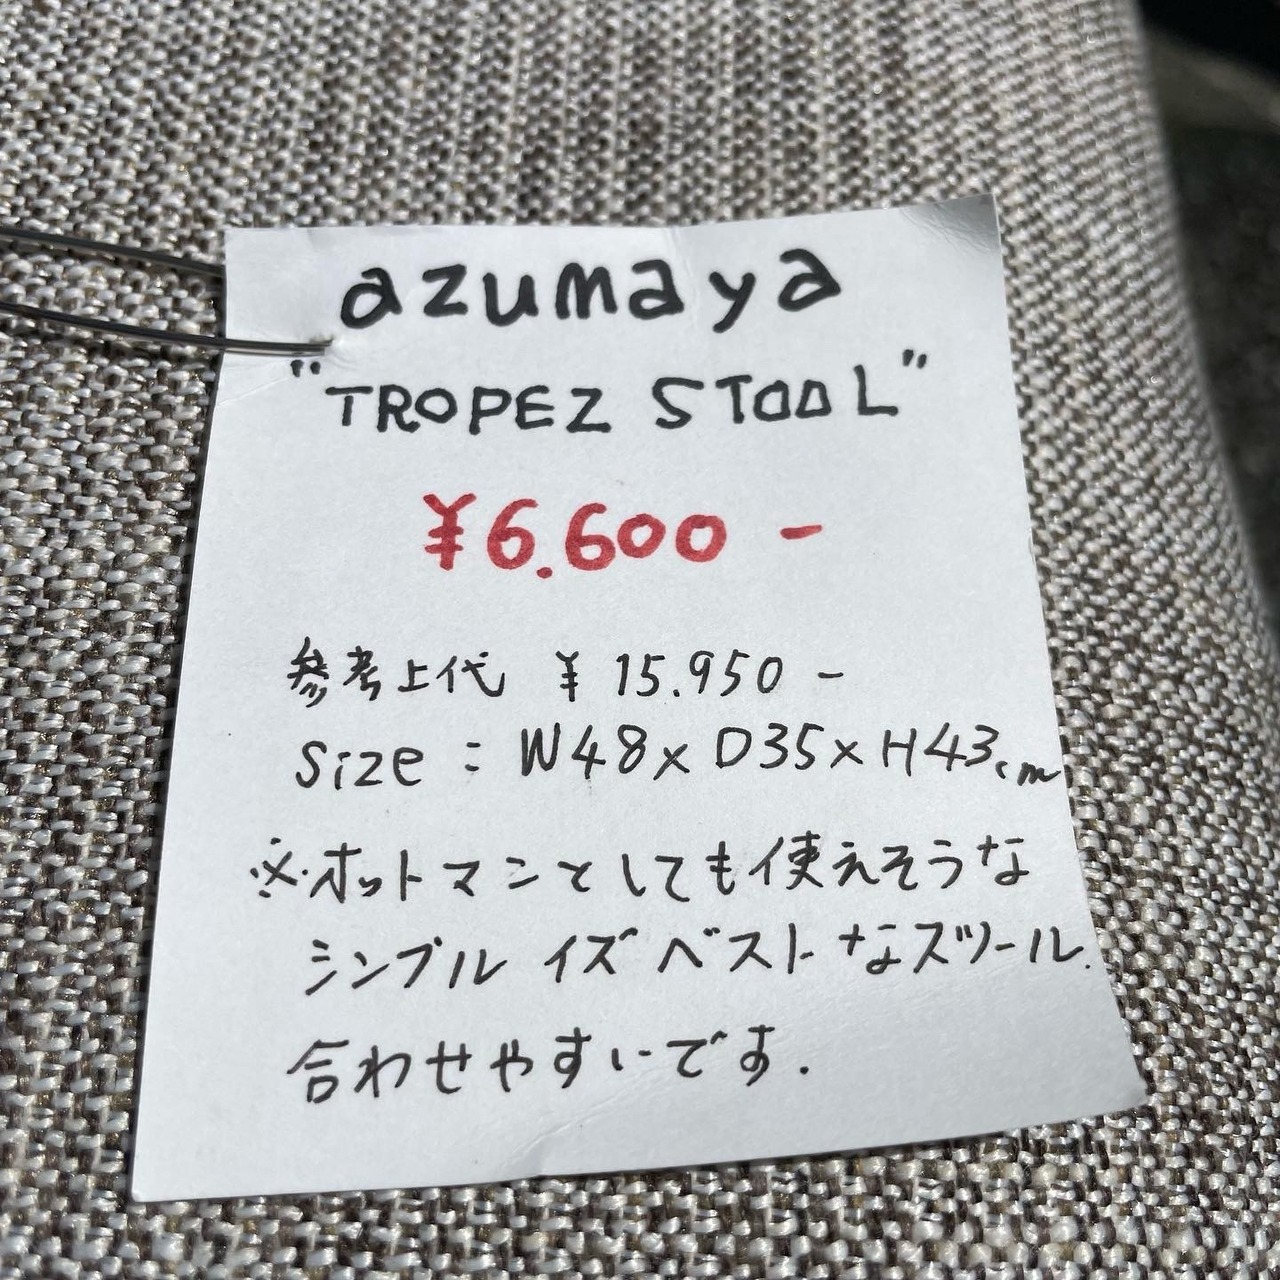 azumaya
"TROPEZ STOOL"
¥6.600 -
参考上代 ¥ 15.950 -
Size : W48 x D35 x H43cm
※.ホットマンとしても使えそうな
シンプル イズ ベスト なスツール.
合わせやすいです.